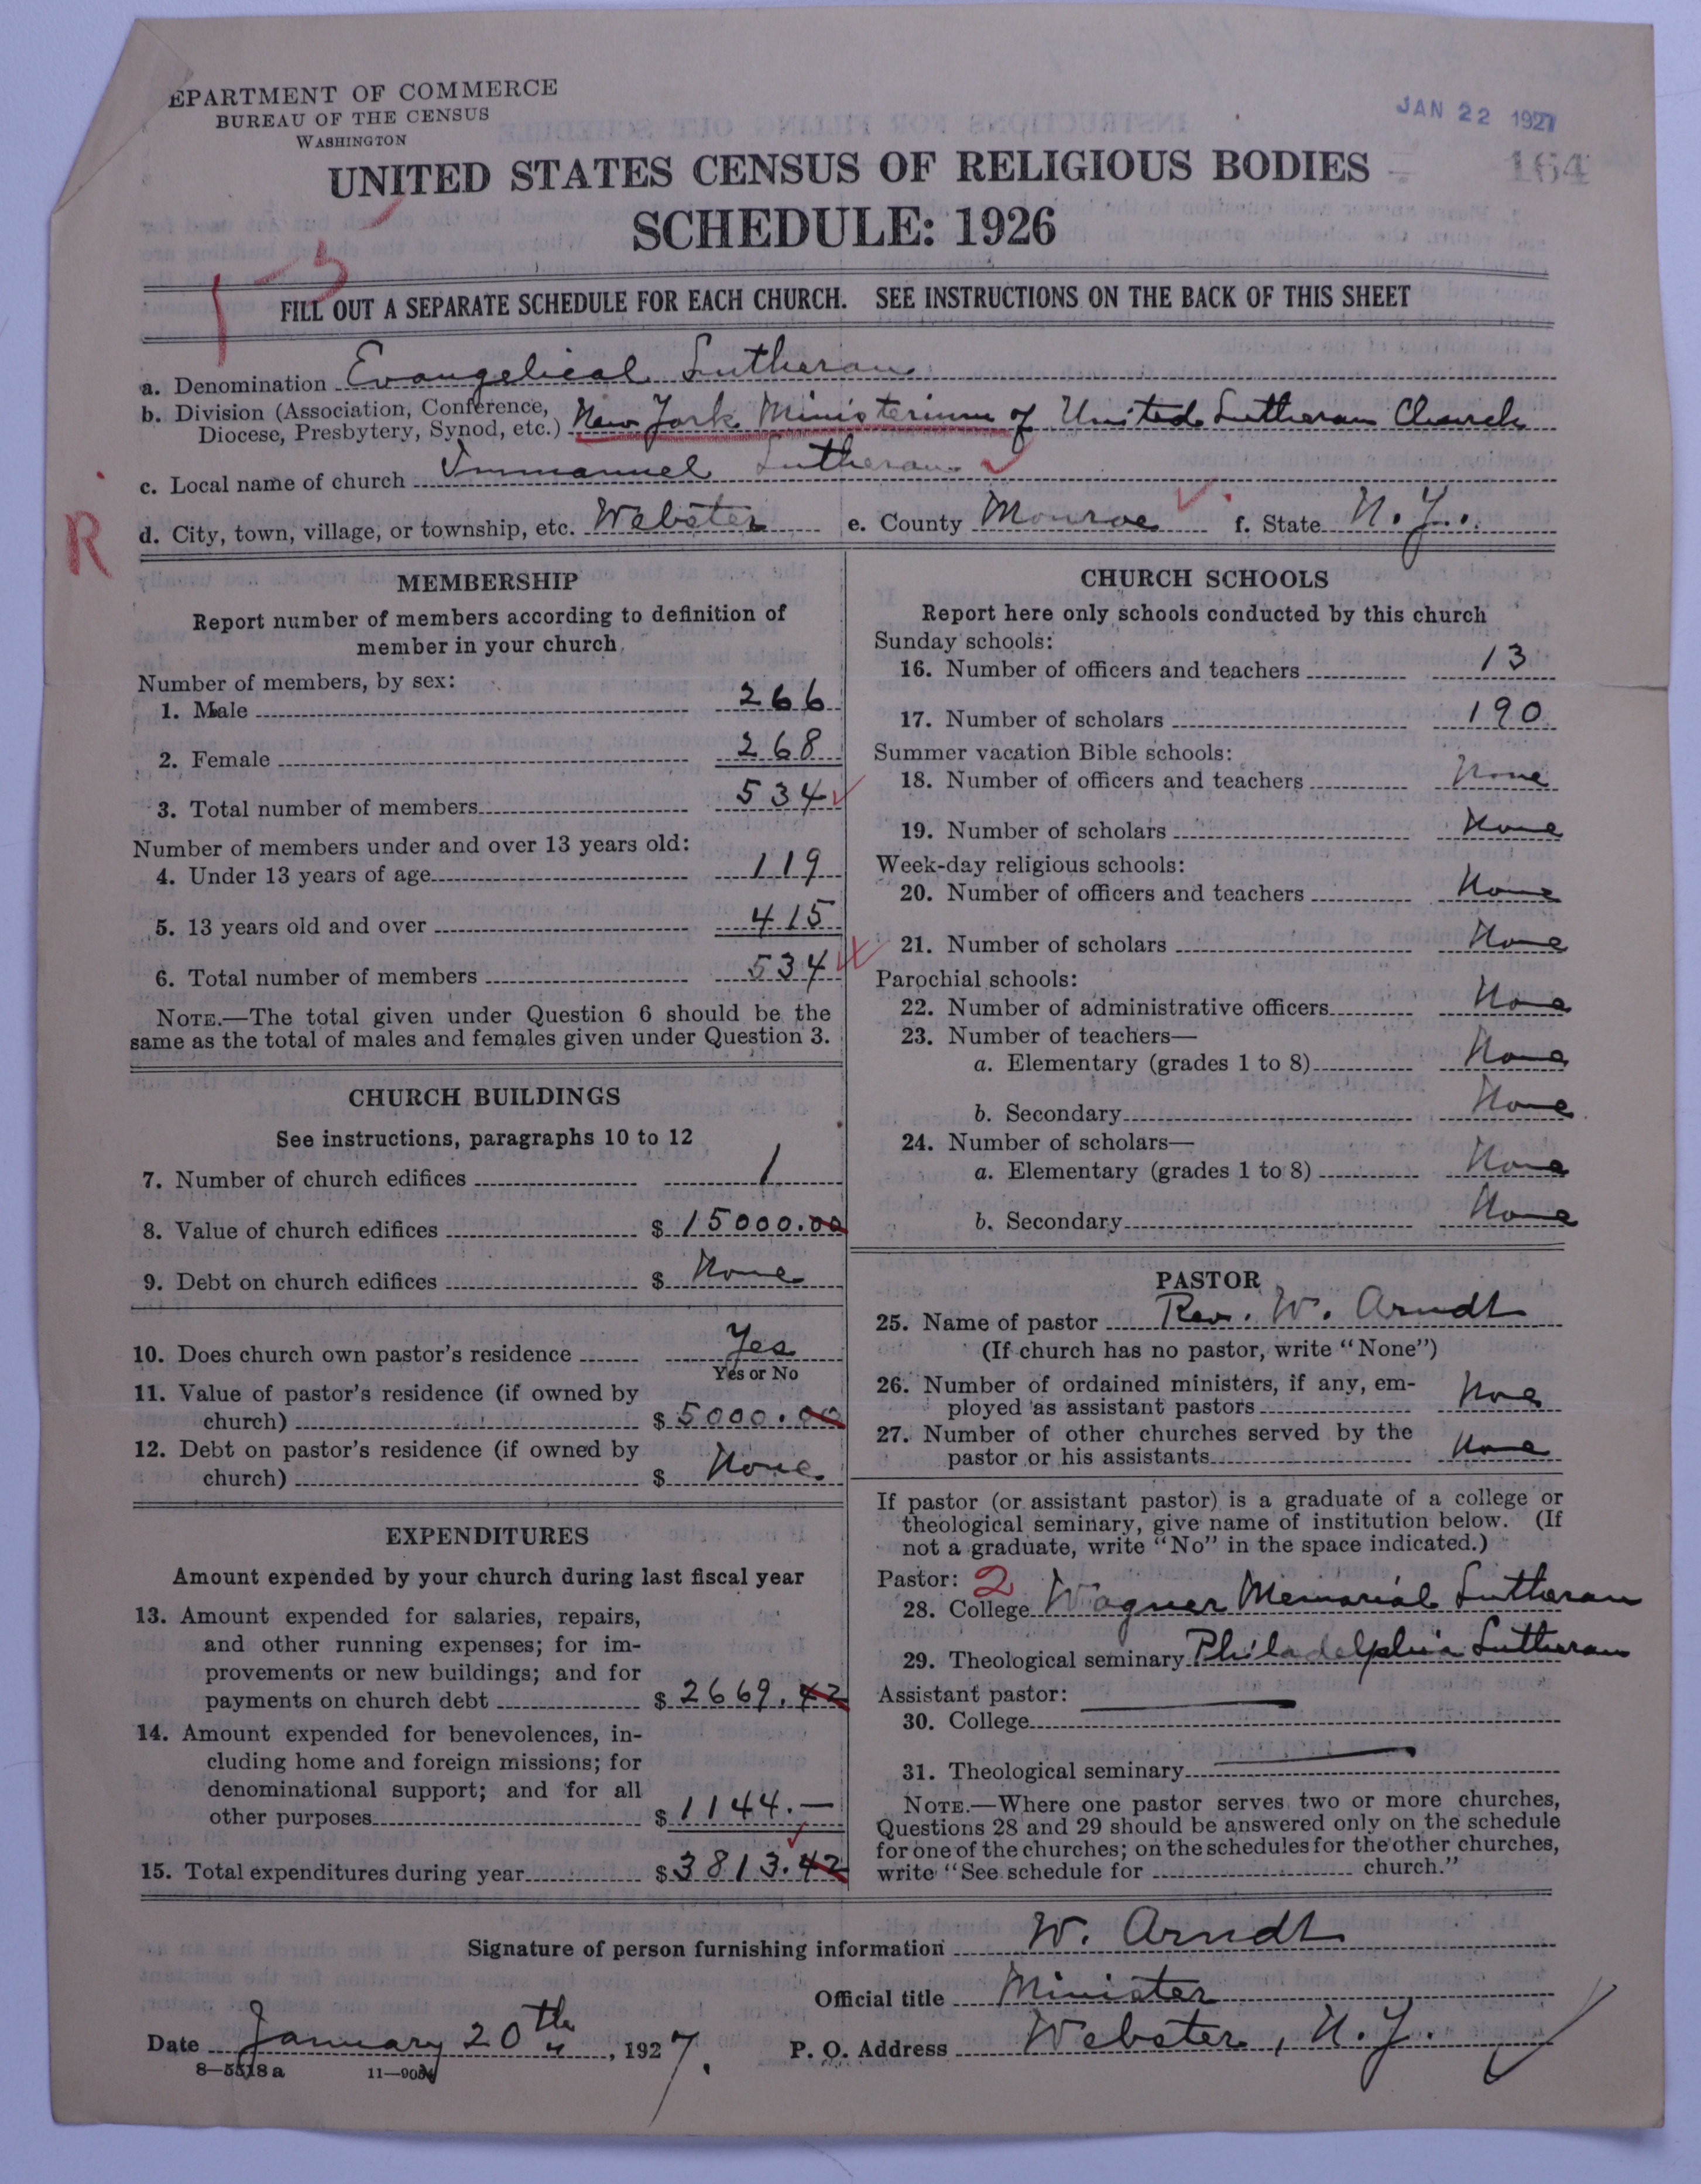 EPARTMENT OF COMMERCE
BUREAU OF THE CENSUS
WASHINGTON
JAN 22 1927
164
UNITED STATES CENSUS OF RELIGIOUS BODIES
SCHEDULE: 1926
1-3
FILL OUT A SEPARATE SCHEDULE FOR EACH CHURCH. SEE INSTRUCTIONS ON THE BACK OF THIS SHEET
a. Denomination Evangelical Lutheran
b. Division (Association, Conference, Diocese, Presbytery, Synod, etc.) New York Ministerium of United Lutheran Church
c. Local name of church Immanuel Lutheran
R
d. City, town, village, or township, etc. Webster e. County Monroe f. State N.Y.
MEMBERSHIP
Report number of members according to definition of
member in your church
Number of members, by sex:
1. Male 266
2. Female 268
3. Total number of members 534
Number of members under and over 13 years old:
4. Under 13 years of age 119
5. 13 years old and over 415
6. Total number of members 534
NOTE.—The total given under Question 6 should be the
same as the total of males and females given under Question 3.
CHURCH BUILDINGS
See instructions, paragraphs 10 to 12
7. Number of church edifices 1
8. Value of church edifices $ 15000.00
9. Debt on church edifices $ None
10. Does church own pastor's residence Yes
Yes or No
11. Value of pastor's residence (if owned by
church) $ 5000.00
12. Debt on pastor's residence (if owned by
church) $ None
EXPENDITURES
Amount expended by your church during last fiscal year
13. Amount expended for salaries, repairs,
and other running expenses; for im-
provements or new buildings; and for
payments on church debt $ 2669.42
14. Amount expended for benevolences, in-
cluding home and foreign missions; for
denominational support; and for all
other purposes $ 1144.—
15. Total expenditures during year $ 3813.42
CHURCH SCHOOLS
Report here only schools conducted by this church
Sunday schools:
16. Number of officers and teachers 13
17. Number of scholars 190
Summer vacation Bible schools:
18. Number of officers and teachers None
19. Number of scholars None
Week-day religious schools:
20. Number of officers and teachers None
21. Number of scholars None
Parochial schools:
22. Number of administrative officers None
23. Number of teachers—
a. Elementary (grades 1 to 8) None
b. Secondary None
24. Number of scholars—
a. Elementary (grades 1 to 8) None
b. Secondary None
PASTOR
25. Name of pastor Rev. W. Arndt
(If church has no pastor, write "None")
26. Number of ordained ministers, if any, em-
ployed as assistant pastors None
27. Number of other churches served by the
pastor or his assistants None
If pastor (or assistant pastor) is a graduate of a college or
theological seminary, give name of institution below. (If
not a graduate, write "No" in the space indicated.)
Pastor: 2
28. College Wagner Memorial Lutheran
29. Theological seminary Philadelphia Lutheran
Assistant pastor:
30. College
31. Theological seminary
NOTE.—Where one pastor serves two or more churches,
Questions 28 and 29 should be answered only on the schedule
for one of the churches; on the schedules for the other churches,
write "See schedule for church."
Signature of person furnishing information W. Arndt
Official title Minister
Date January 20th, 1927. P. O. Address Webster, N.Y.
8—5518 a